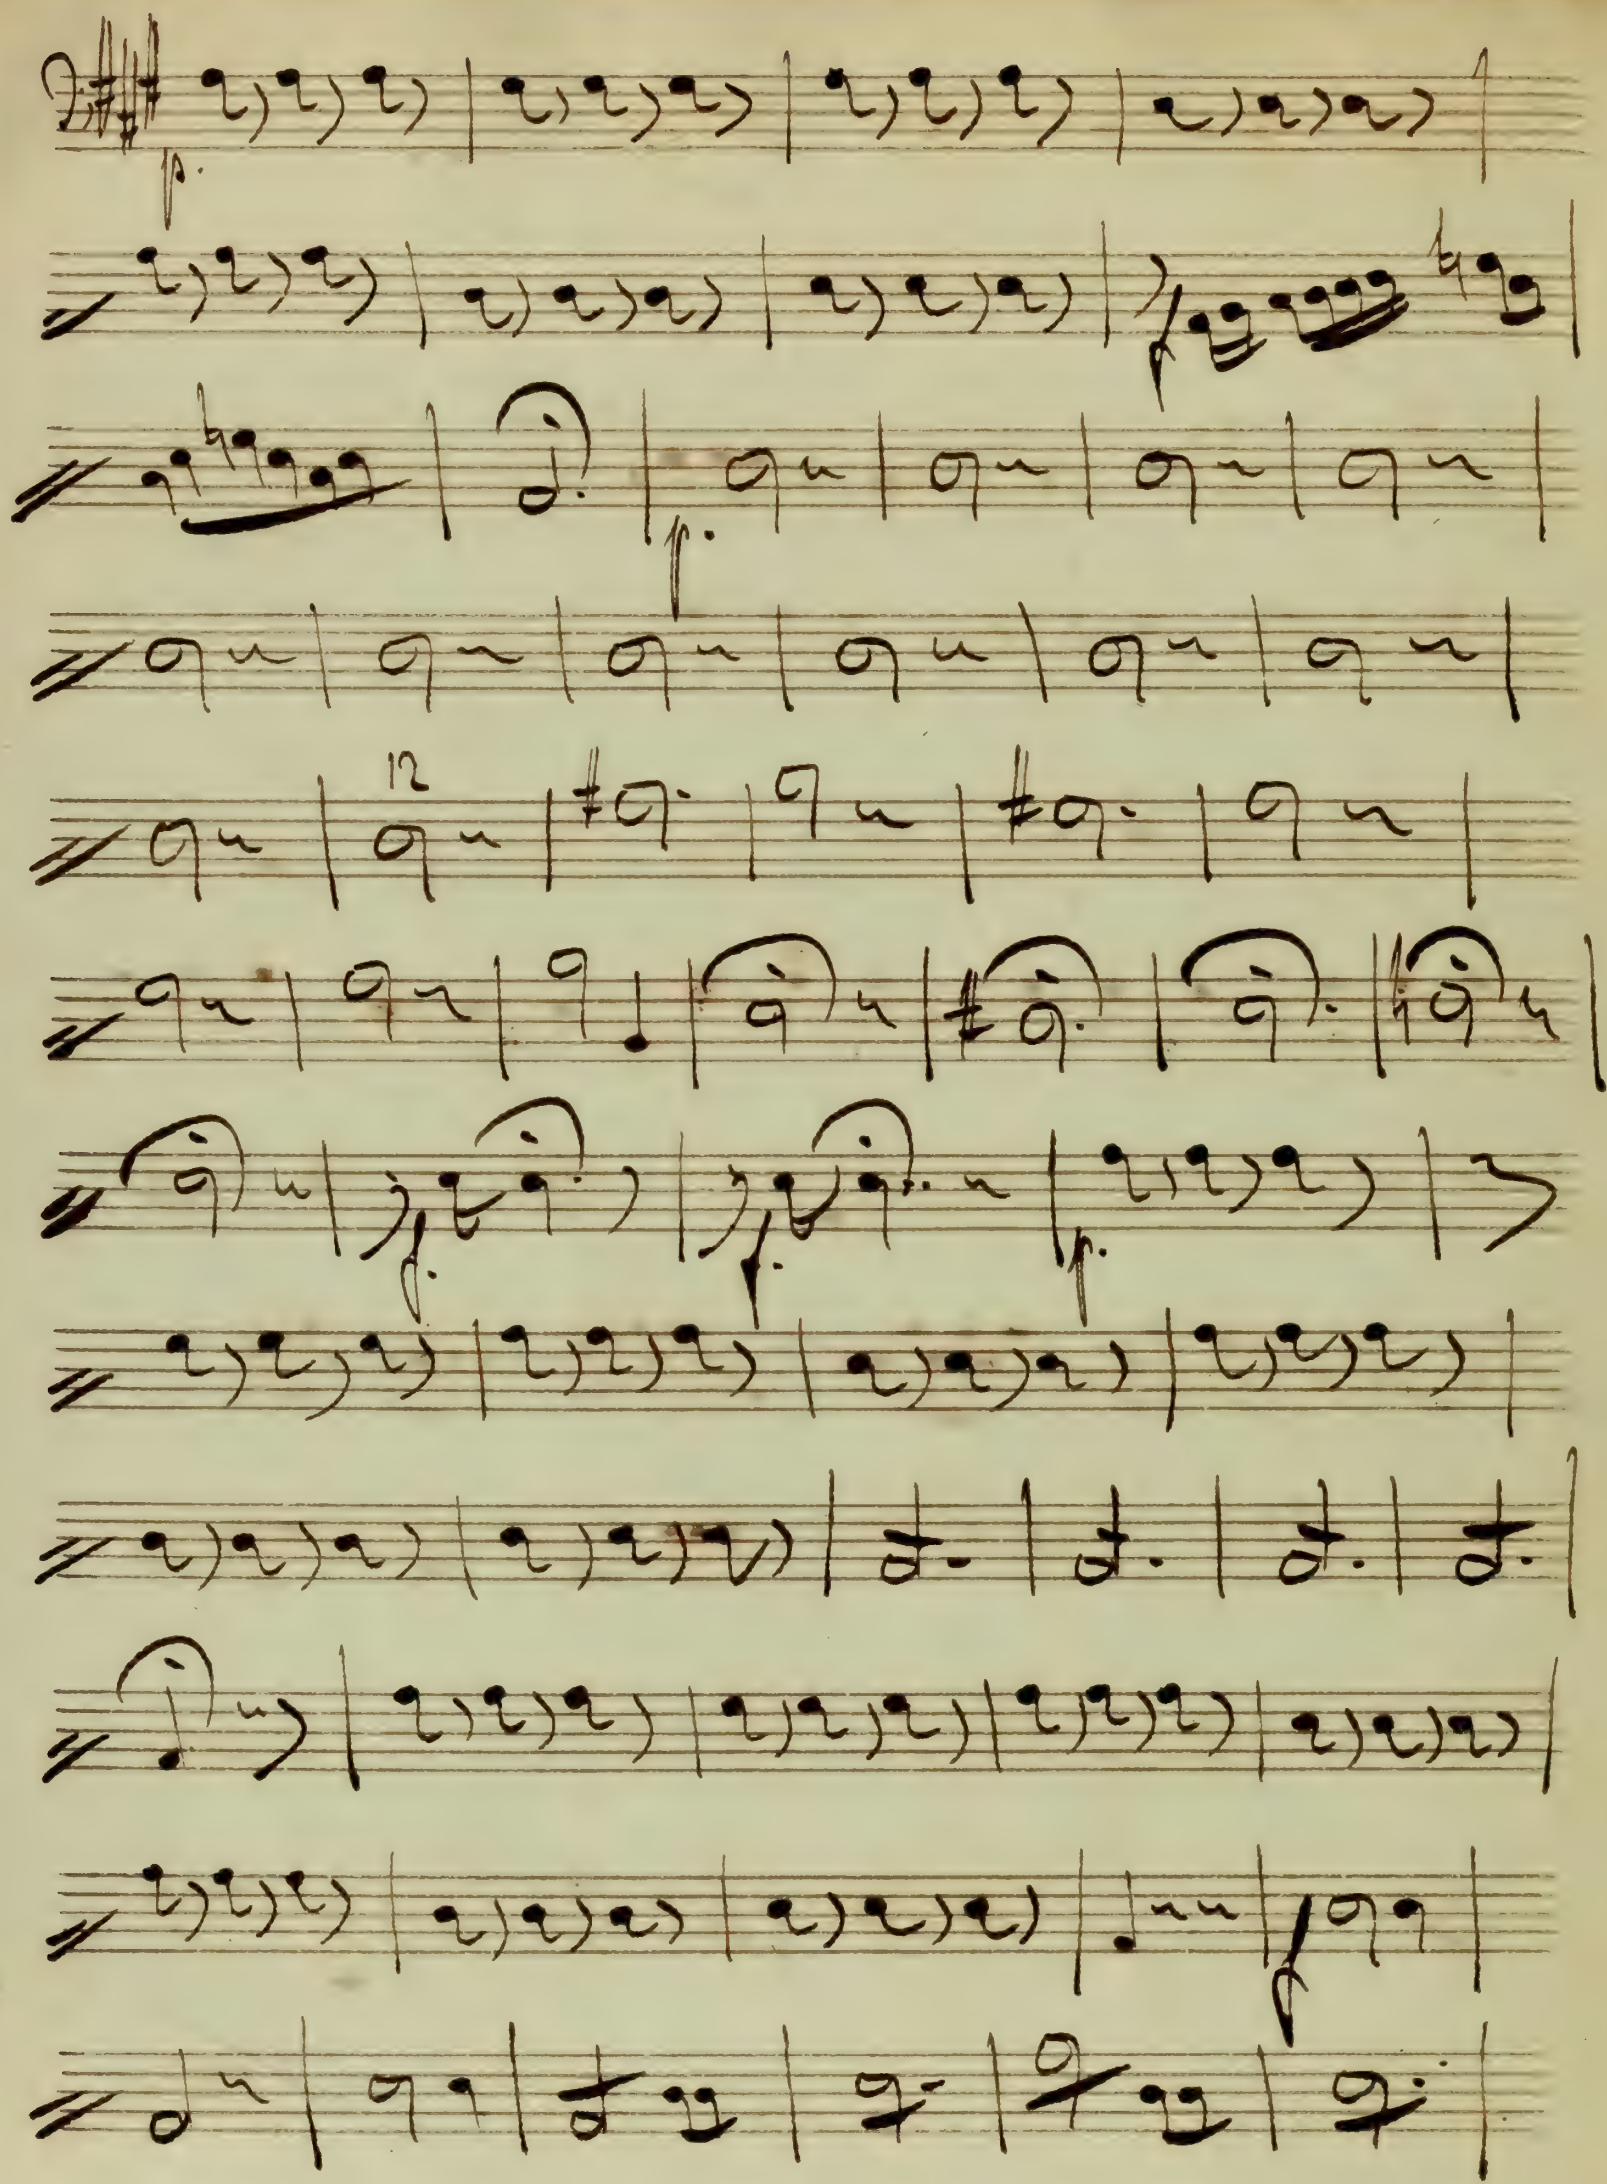 p.
f
p.
12
f. f. p.
f